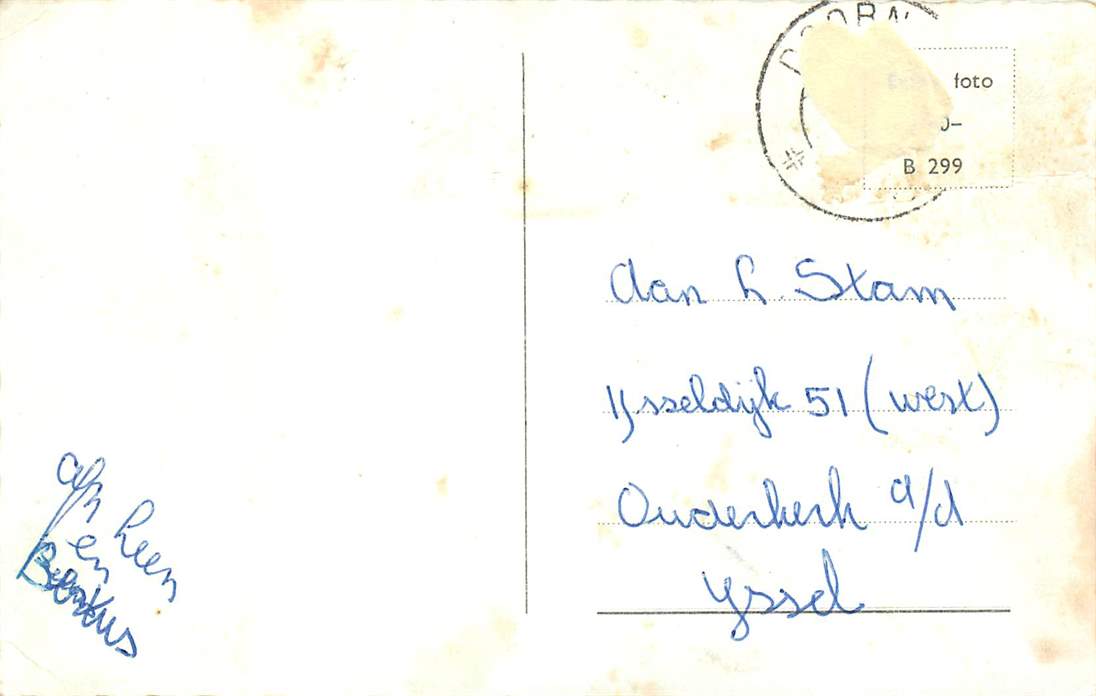 DOORN
foto
0–
B 299
Aan L. Stam
IJsseldijk 51 (west)
Ouderkerk a/d
Yssel
afz Leen
en